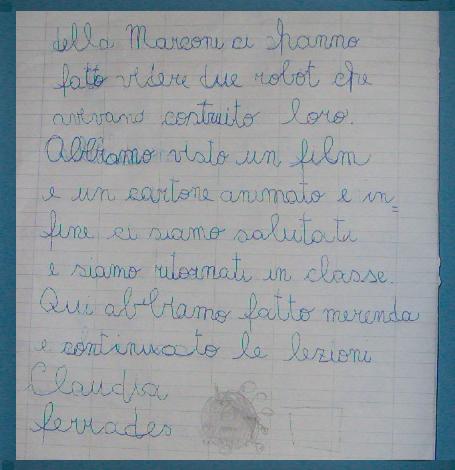 della Marconi ci hanno
fatto vedere due robot che
avevano costruito loro.
Abbiamo visto un film
e un cartone animato e in=
fine ci siamo salutati
e siamo ritornati in classe.
Qui abbiamo fatto merenda
e continuato le lezioni
Claudia